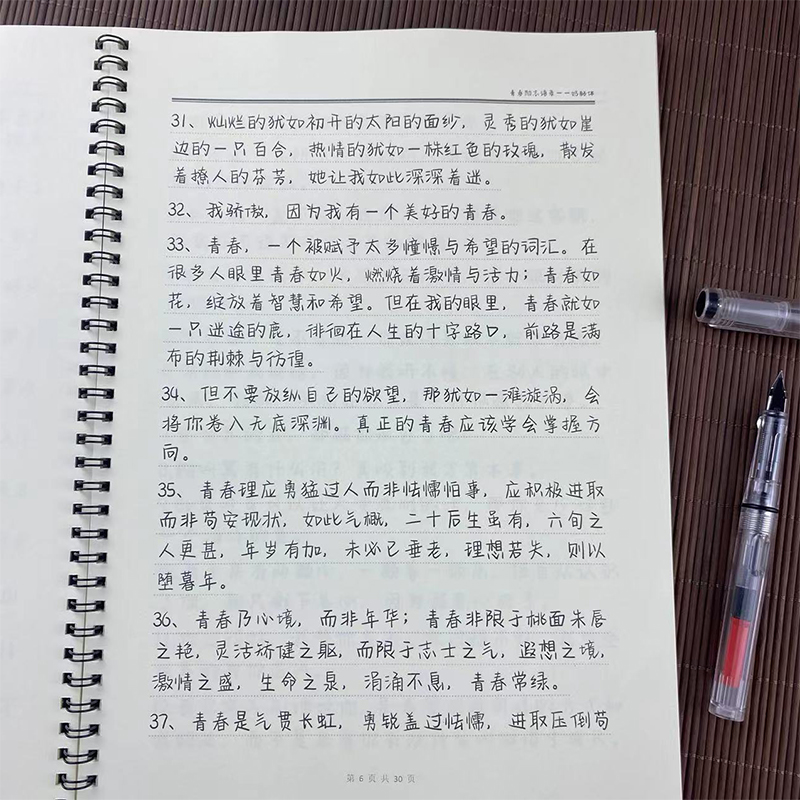 青春励志语录——奶酪体
31、灿烂的犹如初开的太阳的面纱，灵秀的犹如崖
边的一只百合，热情的犹如一株红色的玫瑰，散发
着撩人的芬芳，她让我如此深深着迷。
32、我骄傲，因为我有一个美好的青春。
33、青春，一个被赋予太多憧憬与希望的词汇。在
很多人眼里青春如火，燃烧着激情与活力；青春如
花，绽放着智慧和希望。但在我的眼里，青春就如
一只迷途的鹿，徘徊在人生的十字路口，前路是满
布的荆棘与彷徨。
34、但不要放纵自己的欲望，那犹如一滩漩涡，会
将你卷入无底深渊。真正的青春应该学会掌握方
向。
35、青春理应勇猛过人而非怯懦怕事，应积极进取
而非苟安现状，如此气概，二十后生虽有，六旬之
人更甚，年岁有加，未必已垂老，理想若失，则以
堕暮年。
36、青春乃心境，而非年华；青春非限于桃面朱唇
之艳，灵活矫健之躯，而限于志士之气，遐想之境，
激情之盛，生命之泉，涓涌不息，青春常绿。
37、青春是气贯长虹，勇锐盖过怯懦，进取压倒苟
第 6 页 共 30 页